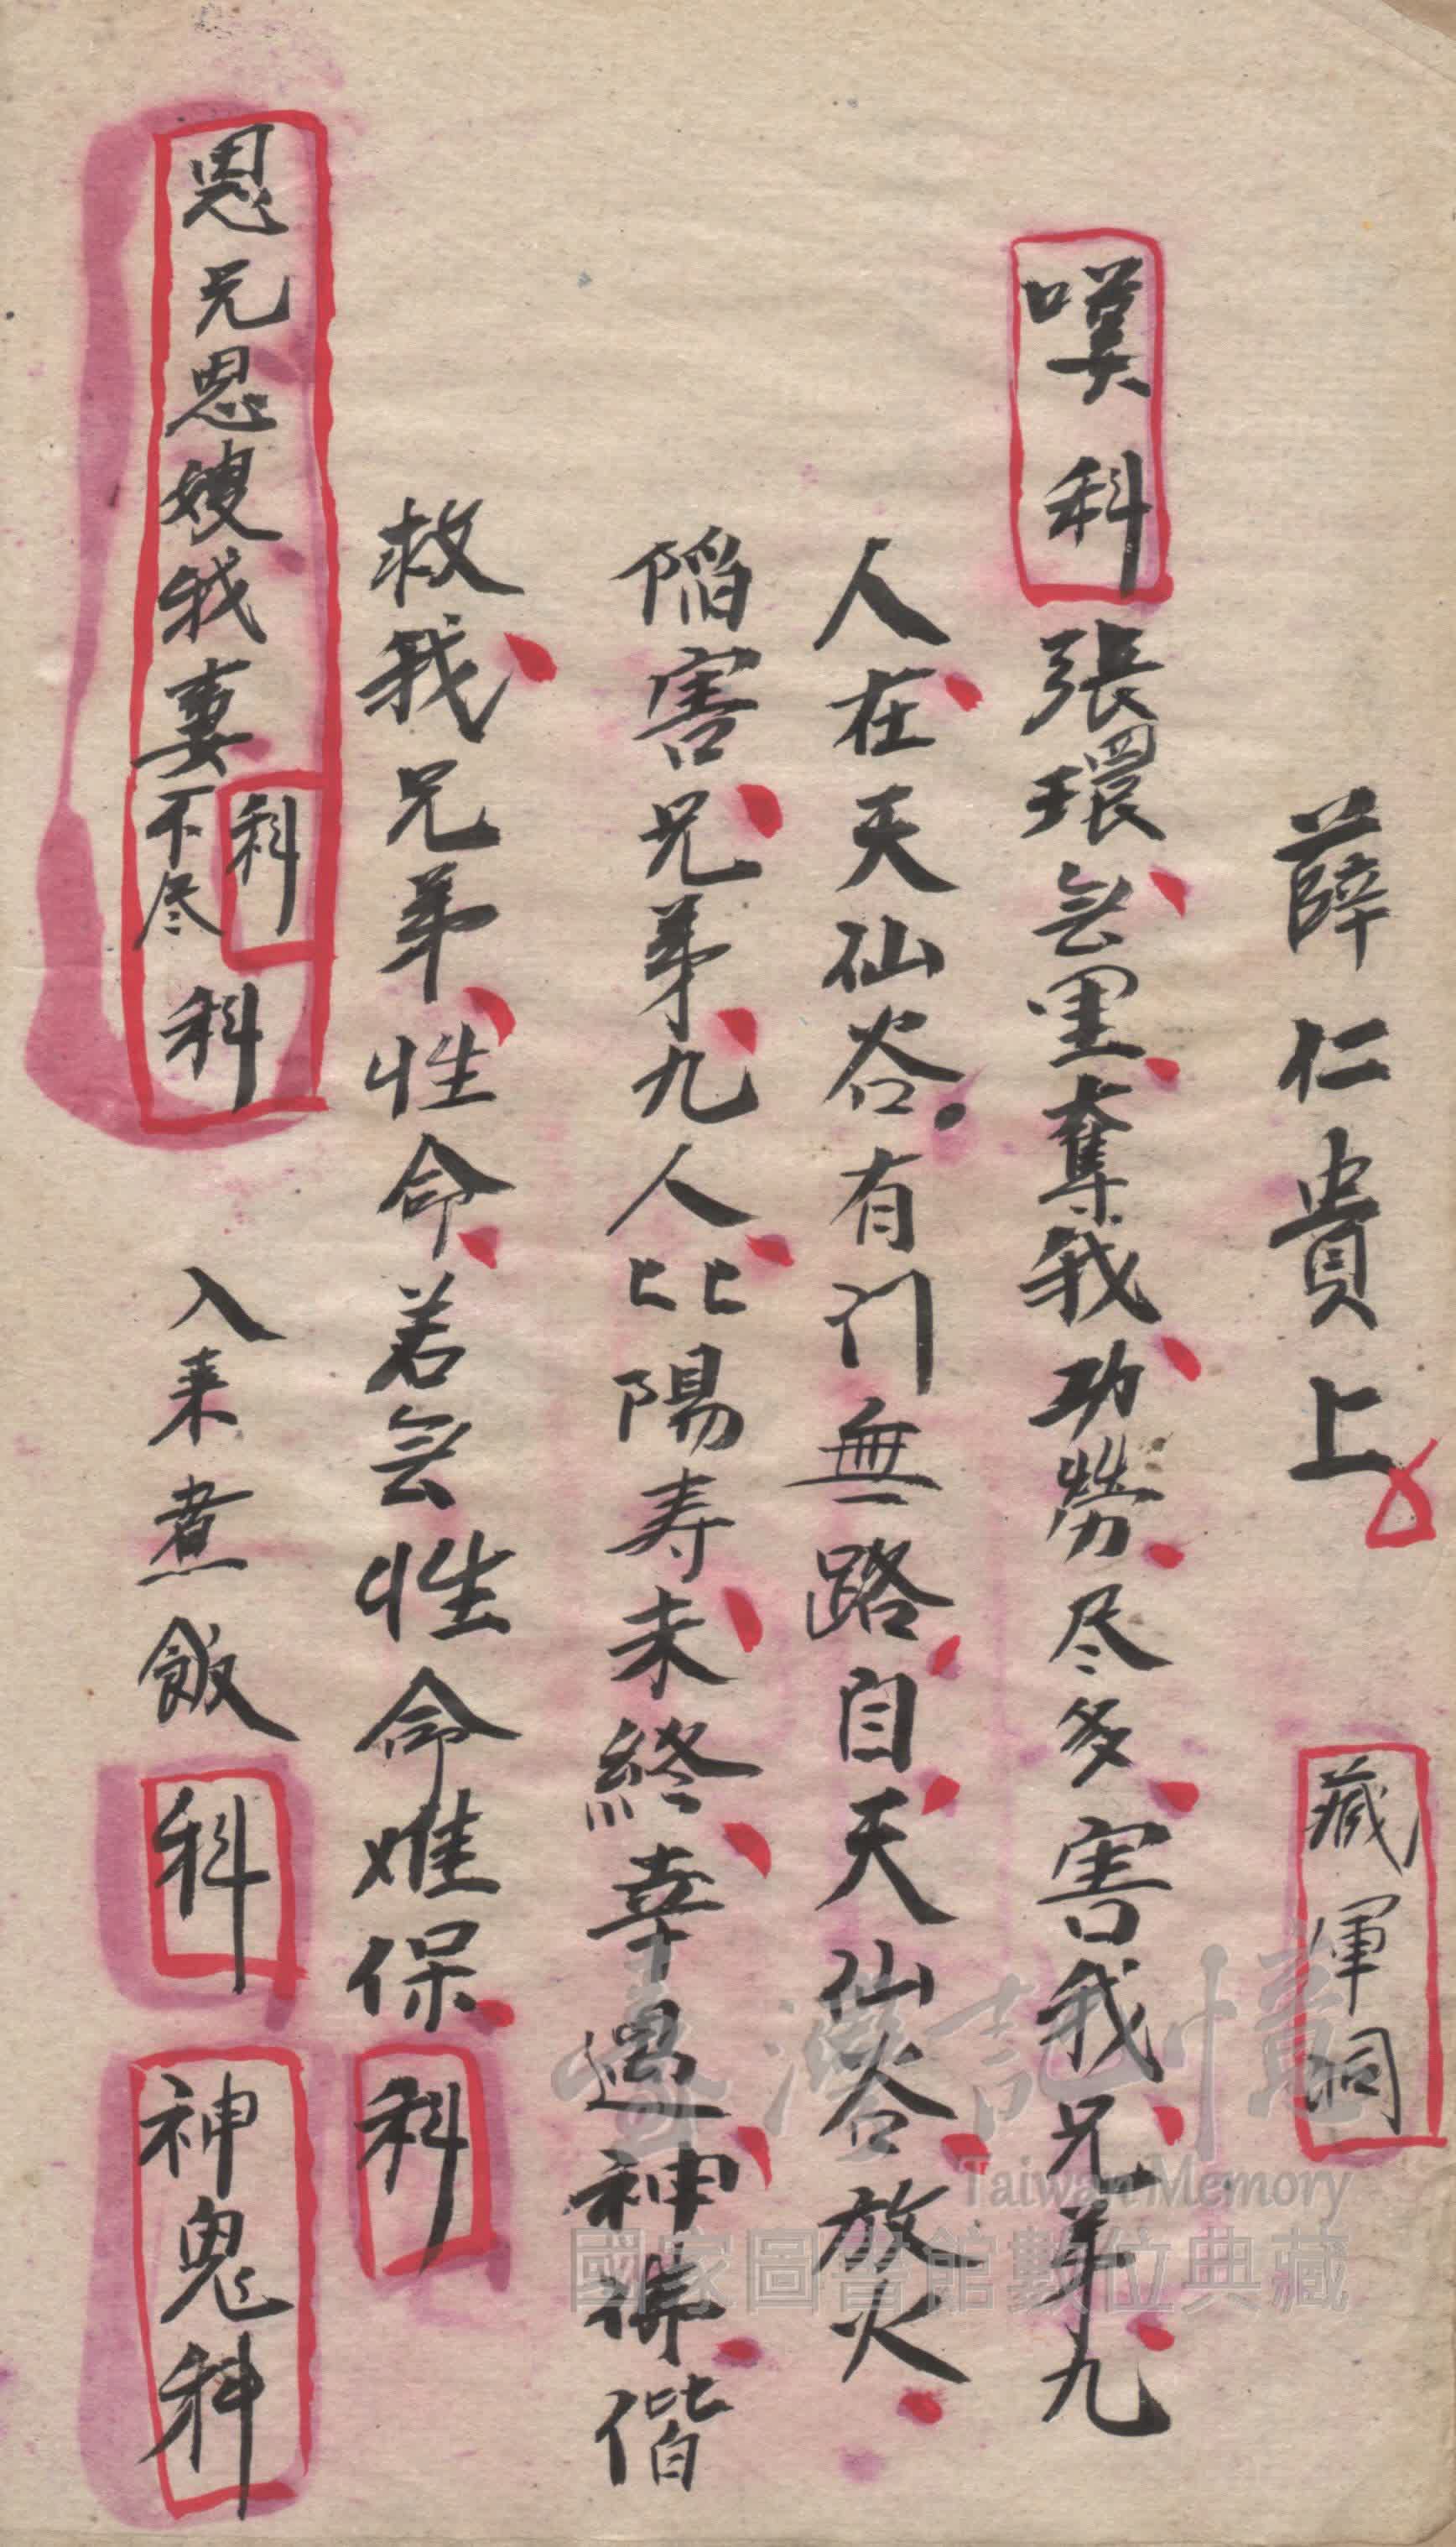 薛仁貴上 藏軍洞
嘆科 張環旡里奪我功勞尽多害我兄弟九
人在天仙谷有门無路自天仙谷放火
陷害兄弟九人比陽寿未終幸遇神佛偕
救我兄弟性命若旡性命难保 科
思兄思嫂我妻不尽 科 科 入来煮飯 科 神鬼科
臺灣記憶
Taiwan Memory
國家圖書館數位典藏